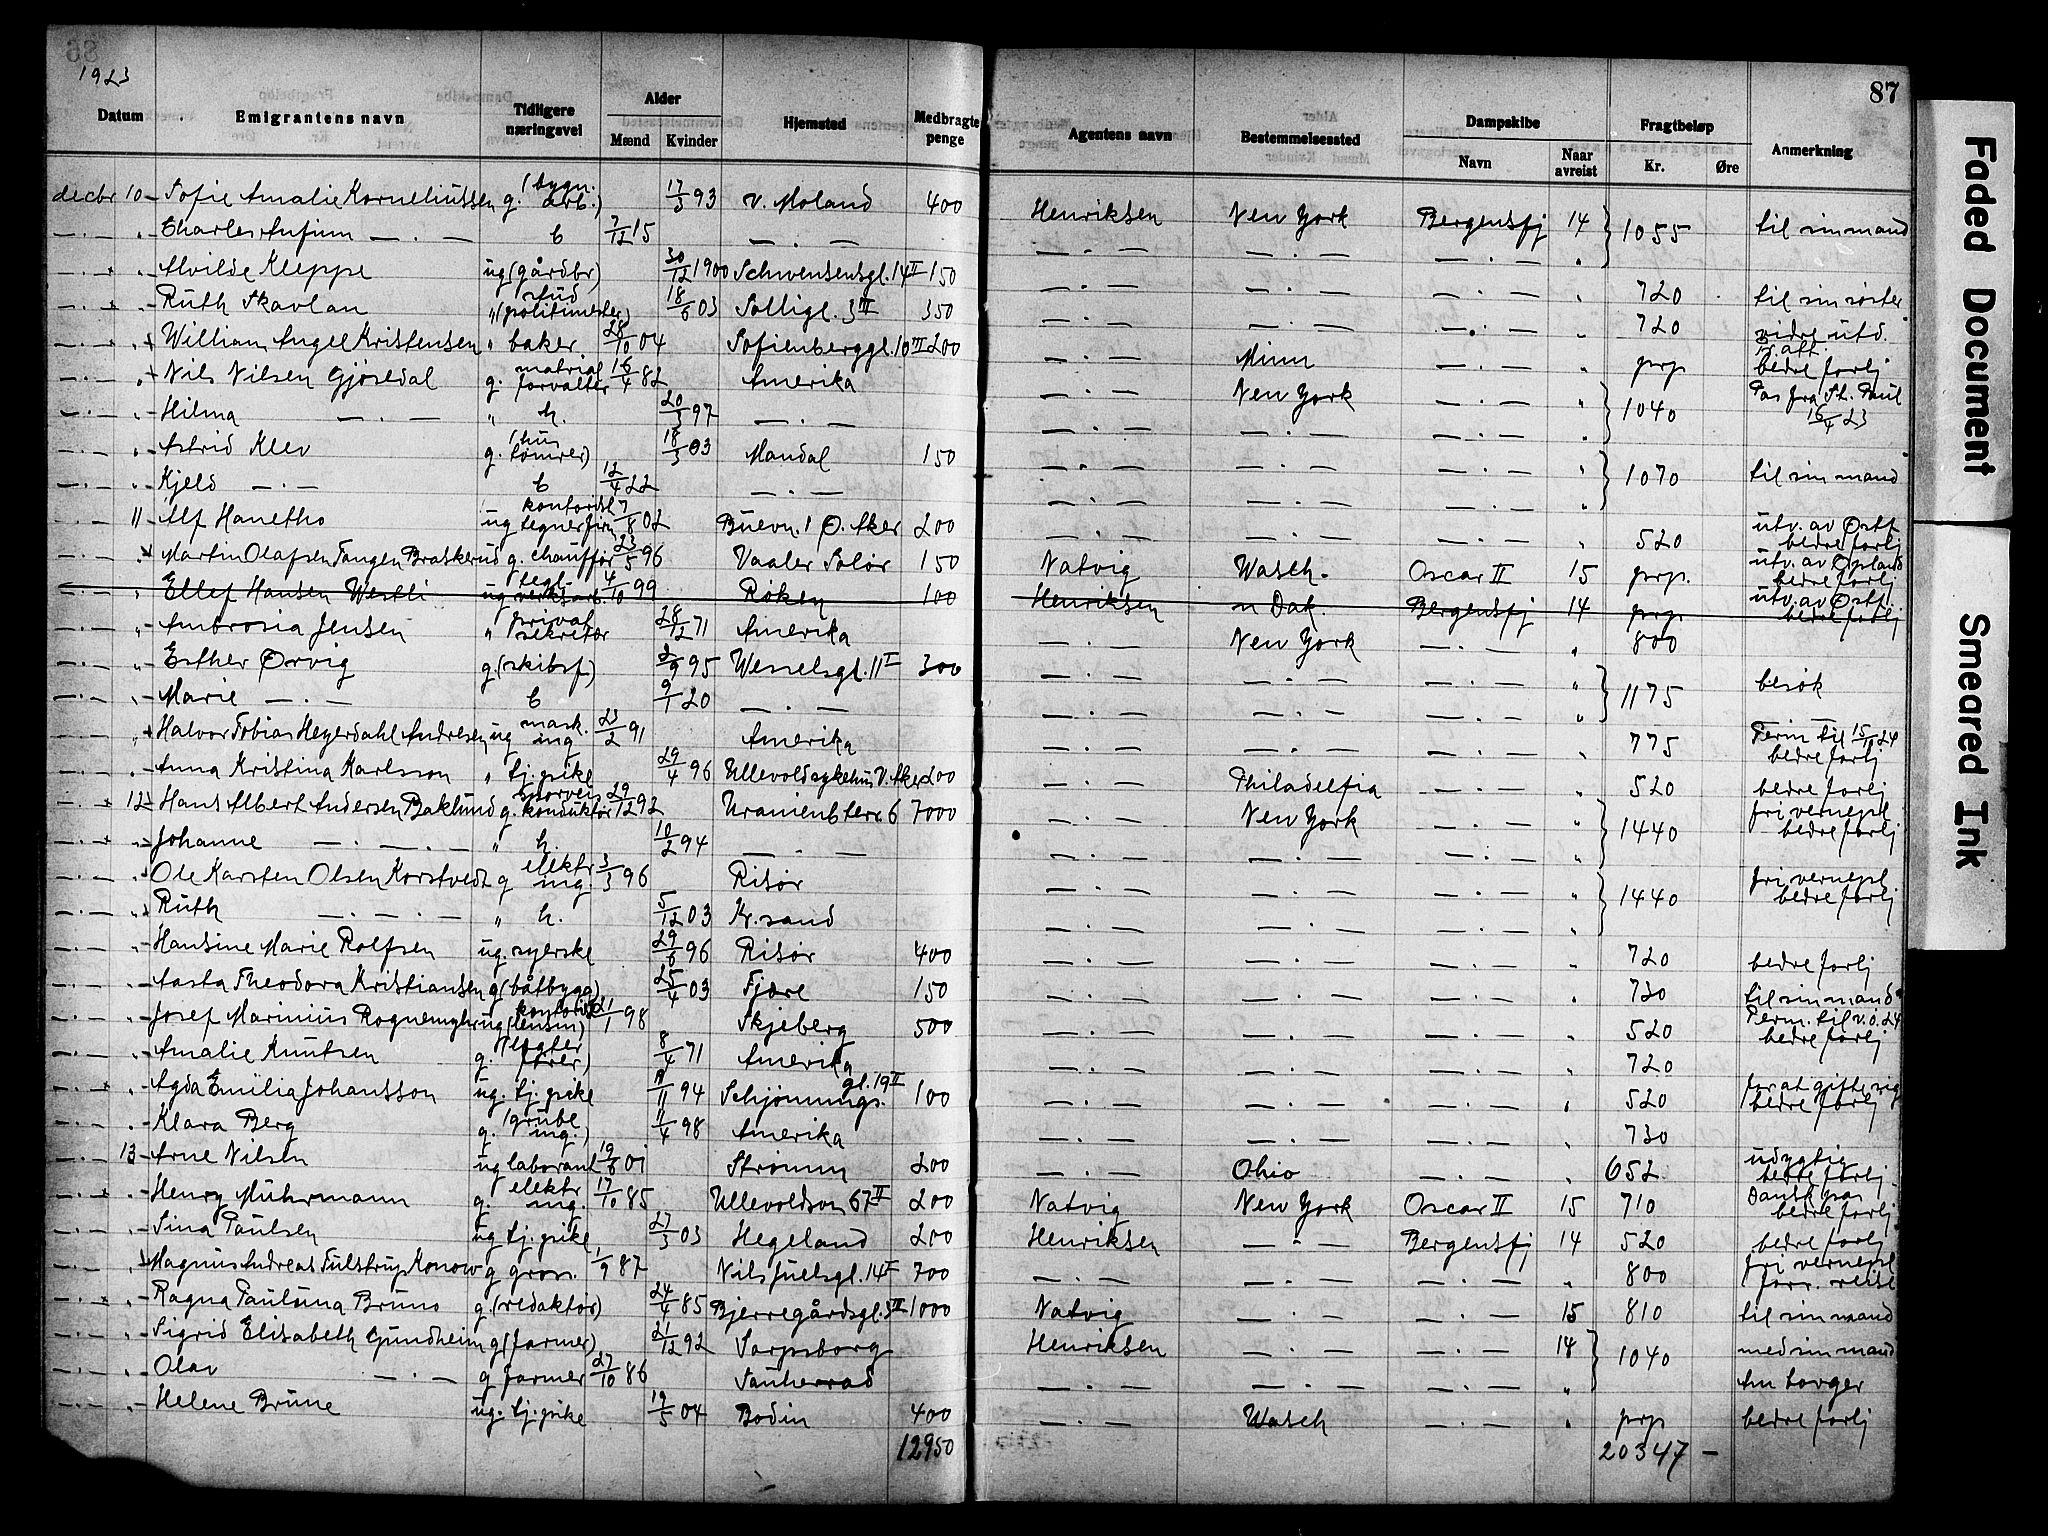 1923
87
Datum Emigrantens navn Tidligere næringsvei Alder Mænd Kvinder Hjemsted Medbragte penge Agentens navn Bestemmelsessted Dampskibe Navn Naar avreist Fragtbeløp Kr. Øre Anmerkning
decbr 10 Sofie Amalie Korneliussen g. (bygn. arb.) 17/3 93 V. Moland 400 Henriksen New York Bergensfj 14 } 1055 til sin mand
— . — " Charles Anfinn — . — b 7/12 15 — . — — . — — . — — . — "
— . — " Alvilde Kleppe ug (gårdbr) 30/12 1900 Schwensensgt. 14 II 150 — . — — . — — . — " 720 til sin søster
— . — " Ruth Skavlan " (politimester) stud 18/6 03 Solligt. 3 III 350 — . — — . — — . — " 720 vidre utd.
— . — " William Angel Kristensen " baker 28/10 04 Sofienberggt. 10 III 200 — . — Minn — . — " prp bedre forhj
— . — " Nils Nilsen Gjøsedal g. matrial forvalter 16/4 82 Amerika — . — New York — . — " } 1040 Pas fra St. Paul 16/4 23
— . — " Hilma — . — " h. 20/3 97 — . — — . — — . — — . — "
— . — " Astrid Klev g. (hus tømrer) 18/3 03 Mandal 150 — . — — . — — . — " } 1070 til sin mand
— . — " Kjeld — . — b 12/4 22 — . — — . — — . — — . — "
— . — 11 Alf Hanetho ug kontorist tegnefirm 7/8 02 Buevn. 1 Ø. Aker 200 — . — — . — — . — " 520 utv. av Østf bedre forhj
— . — " Martin Olafsen Tangen Braskerud g. chauffør 23/5 96 Vaaler Solør 150 Natvig Wasch. Oscar II 15 prp. utv. av Opland bedre forhj
— . — " Ellef Hansen Westli ug tegl- verksarb. 4/10 99 Røken 100 Henriksen n Dak. Bergensfj 14 prp utv. av Østf bedre forhj
— . — " Ambrosia Jensen " privat sekretær 28/12 71 Amerika — . — New York — . — " 800
— . — " Esther Ørvig g. (skibsf) 3/9 95 Wesselsgt. 11 I 300 — . — — . — — . — " } 1175 besøk
— . — " Marie — . — b 9/1 20 — . — — . — — . — — . — " —
— . — " Halvor Tobias Heyerdahl Andresen ug mask. ing 23/2 91 Amerika — . — — . — — . — " 775 Perm til 15/1 24 bedre forhj
— . — " Anna Kristina Karlsson " tj. pike 29/4 96 Ullevoldsykehus V. Aker 200 — . — Philadelfia — . — " 520 bedre forhj
— . — 12 Hans Albert Andersen Baklund g. sporvei konduktør 29/12 92 Uranienb terr. 6 7000 — . — New York — . — " } 1440 fri vernepl bedre forhj
— . — " Johanne — . — " h. 10/2 94 — . — — . — — . — — . — "
— . — " Ole Karsten Olsen Korstvedt g elektr ing. 3/3 96 Risør — . — — . — — . — " } 1440 fri vernepl bedre forhj
— . — " Ruth — . — . — " h. 5/12 03 Kr. sand — . — — . — — . — "
— . — " Hansine Marie Rolfsen ug. syerske 29/6 96 Risør 400 — . — — . — — . — " 720 bedre forhj
— . — " Aasta Theodora Kristiansen g (båtbygg) 25/4 03 Fjære 150 — . — — . — — . — " 730 til sin mand
— . — " Josef Marinius Rognemyhr ug kontorist (lensm) 21/1 98 Skjeberg 500 — . — — . — — . — " 520 Perm. til v.o. 24 bedre forhj
— . — " Amalie Knutsen g. (legter fører) 8/4 71 Amerika — . — — . — — . — " 720
— . — " Agda Emilia Johansson ug. tj. pike 11/11 94 Schjønnings gt. 19 II 100 — . — — . — — . — " 520 for at gifte sig bedre forhj
— . — " Klara Berg g. (grube ing.) 11/4 98 Amerika — . — — . — — . — " 730
— . — 13 Arne Nilsen ug laborant 19/6 01 Strømm 200 — . — Ohio — . — " 652 udygtig bedre forhj
— . — " Henry Muhrmann g. elektr ing. 17/10 85 Ullevoldsvn 67 II 200 Natvig New York Oscar II 15 710 Dansk pas bedre forhj
— . — " Sina Paulsen ug tj. pike 27/3 03 Hegeland 200 Henriksen — " — Bergensfj 14 520 bedre forhj
— . — " Magnus Andreas Tulstrup Konow g gross. 1/9 87 Nils Juelsgt. 14 I 700 — . — — . — — . — " 800 fri vernepl forr. reise
— . — " Ragna Paulina Bruno g. (redaktør) 24/4 85 Bjerregårdsgt. 3 III 1000 Natvig . — — . — 15 810 til sin mand
— . — " Sigrid Elisabeth Gundheim g (farmer) 21/12 92 Sarpsborg Henriksen — . — — . — 14 } 1040 med sin mand
— . — " Olav — . — g farmer 27/10 86 Sauherrad — . — — . — — . — " Am borger
— . — " Helene Brune ug. tj. pike 19/5 04 Bodin 400 — . — Wasch — . — " prp bedre forhj
12950 20347 —
Faded Document
Smeared Ink